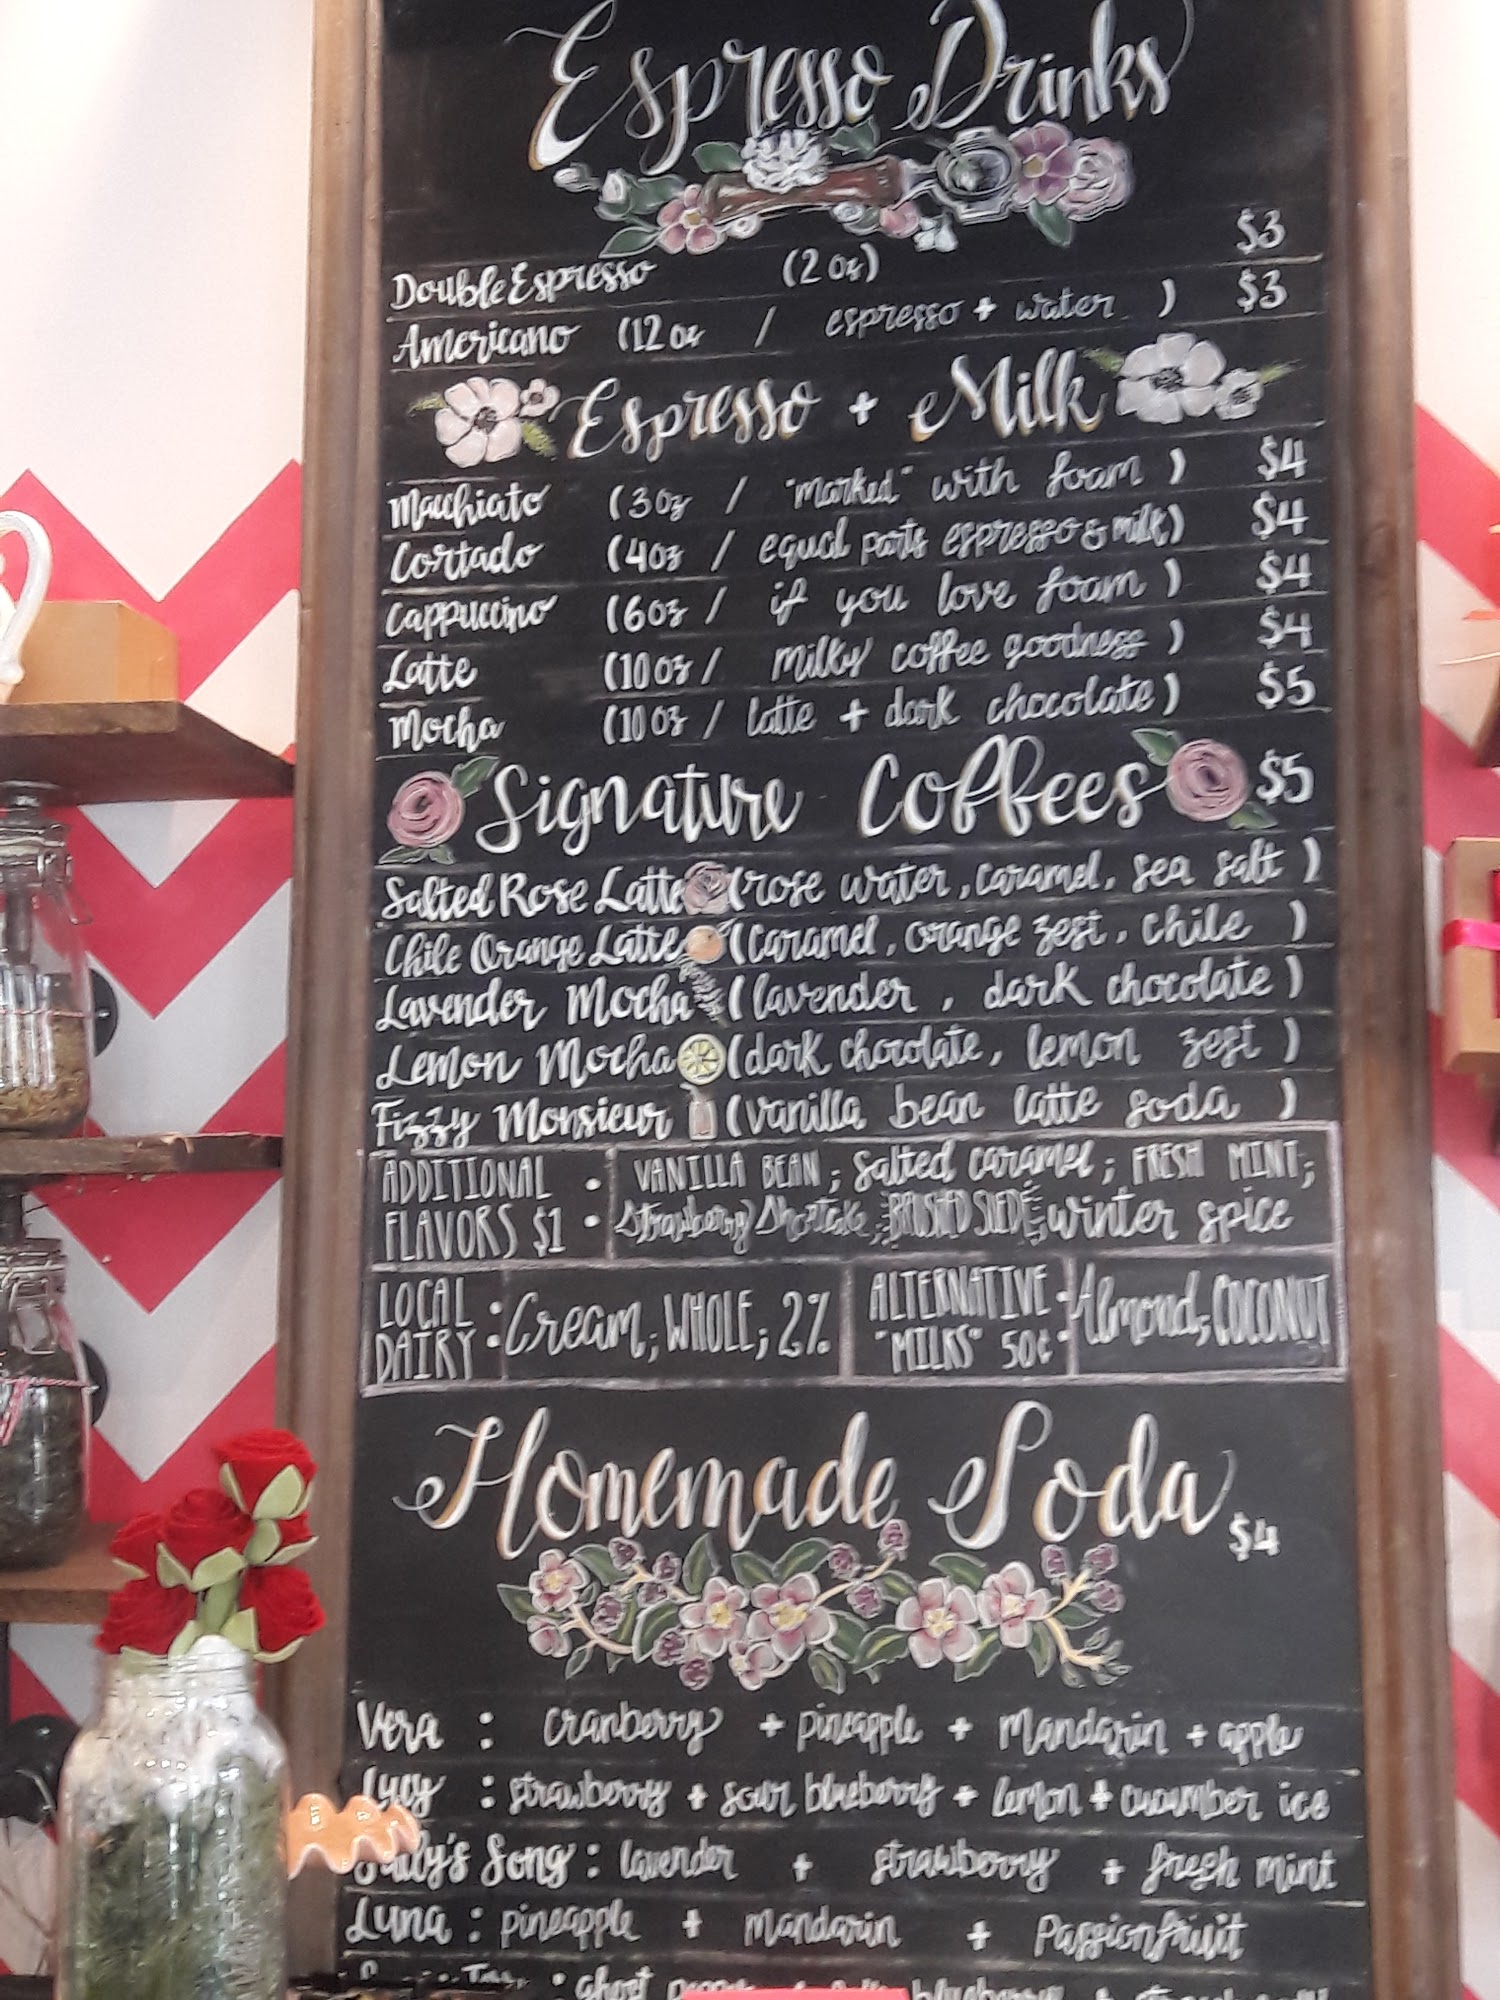 Espresso Drinks
Double Espresso (2 oz) $3
Americano (12 oz / espresso + water ) $3
Espresso + Milk
Macchiato (3 oz / "marked" with foam ) $4
Cortado (4 oz / equal parts espresso & milk) $4
Cappuccino (6 oz / if you love foam ) $4
Latte (10 oz / milky coffee goodness ) $4
Mocha (10 oz / latte + dark chocolate) $5
Signature Coffees $5
Salted Rose Latte (rose water, caramel, sea salt )
Chile Orange Latte (caramel, orange zest, chile )
Lavender Mocha (lavender , dark chocolate)
Lemon Mocha (dark chocolate, lemon zest )
Fizzy Monsieur (vanilla bean latte soda )
ADDITIONAL FLAVORS $1 : VANILLA BEAN; Salted caramel; FRESH MINT;
Strawberry Shortcake; winter spice
LOCAL DAIRY : Cream; WHOLE; 2%
ALTERNATIVE "MILKS" 50¢ : Almond; COCONUT
Homemade Soda $4
Vera : cranberry + pineapple + Mandarin + apple
Lucy : strawberry + sour blueberry + lemon + cucumber ice
Song : lavender + strawberry + fresh mint
Luna : pineapple + mandarin + Passionfruit
: ghost blueberry